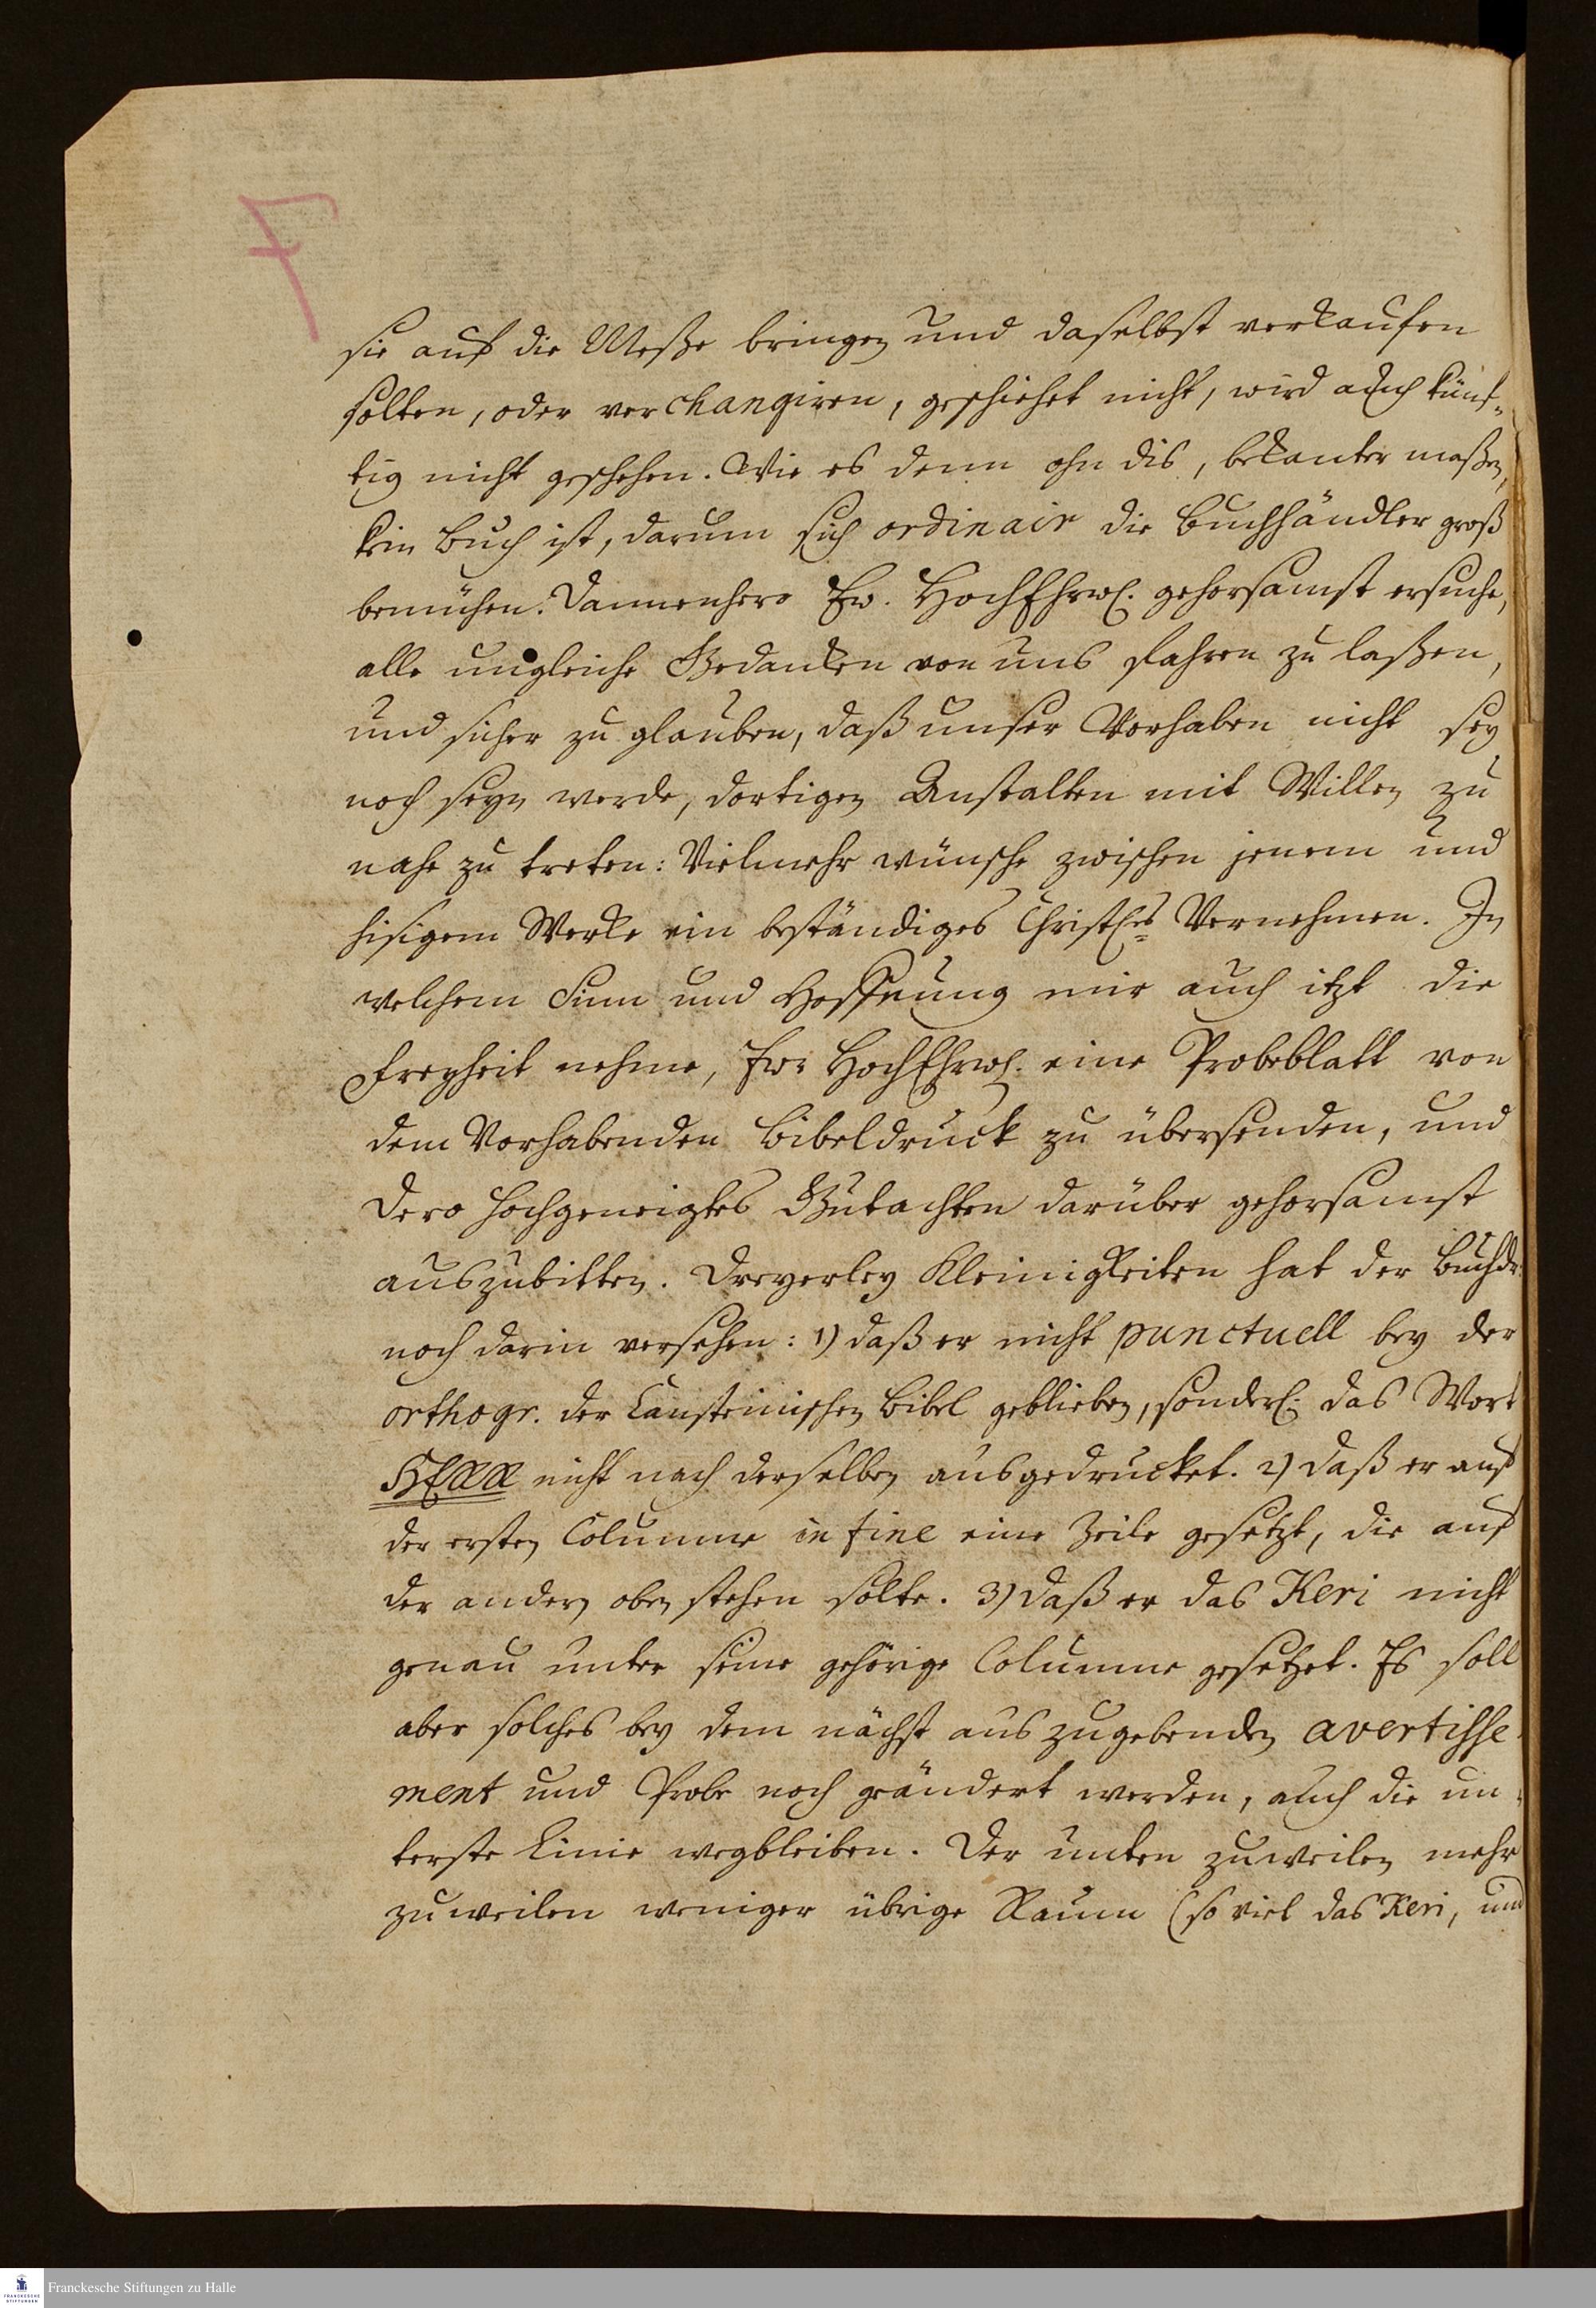 F
sie auf die Meße bringen und daselbst verkaufen
solten, oder verchangiren, geschiehet nicht, wird auch künf-
tig nicht geschehen. Wie es denn ohn dis, bekanter maßen,
kein Buch ist, darum sich ordinair die Buchhändler groß
bemühen. Dannenhero Ew. HochEhrw. gehorsamst ersuche,
alle ungleiche Gedanken von uns fahren zu laßen,
und sicher zu glauben, daß unser Vorhaben nicht sey
noch seyn werde, dortigen Anstalten mit Willen zu
nahe zu treten: Vielmehr wünsche zwischen jenem und
hisigem Werke ein beständiges Christl. Vernehmen. In
welchem Sinn und Hoffnung mir auch itzt die
Freyheit nehme, Ew. HochEhrw. eine Probeblatt von
dem Vorhabenden Bibeldruck zu übersenden, und
Dero hochgeneigtes Gutachten darüber gehorsamst
auszubitten. Dreyerley Kleinigkeiten hat der Buchdr.
noch darin versehen: 1) daß er nicht punctuell bey der
orthogr. der Cansteinischen Bibel geblieben, sonderl. das Wort
HERR nicht nach derselben ausgedrucket. 2) daß er auf
der ersten Columne in fine eine Zeile gesetzt, die auf
der andern oben stehen solte. 3) daß er das Keri nicht
genau unter seine gehörige Columne gesetzet. Es soll
aber solches bey dem nächst auszugebenden avertisse-
ment und Probe noch geändert werden, auch die un-
terste Linie wegbleiben. Der unten zuweilen mehr
zuweilen weniger übrige Raum (so viel das Keri, und
Franckesche Stiftungen zu Halle